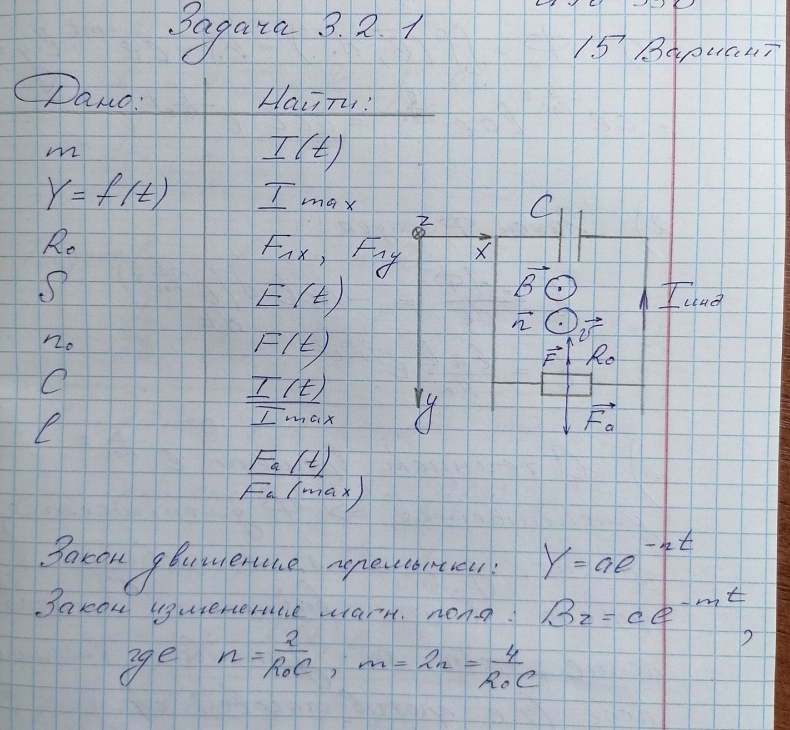 Задача 3.2.1
15 Вариант
Дано:
Найти:
m
I(t)
Y = f(t)
I max
R₀
Fлx, Fлy
S
E(t)
n₀
F(t)
C
I(t)
I max
l
Fa(t)
Fa(max)
z
x
y
C
B⃗
n⃗
v⃗
F⃗
R₀
F⃗a
Iинд
Закон движение перемычки: Y = ae^-nt
Закон изменения магн. поля: Bz = ce^-mt,
где n = 2/R₀C ; m = 2n = 4/R₀C